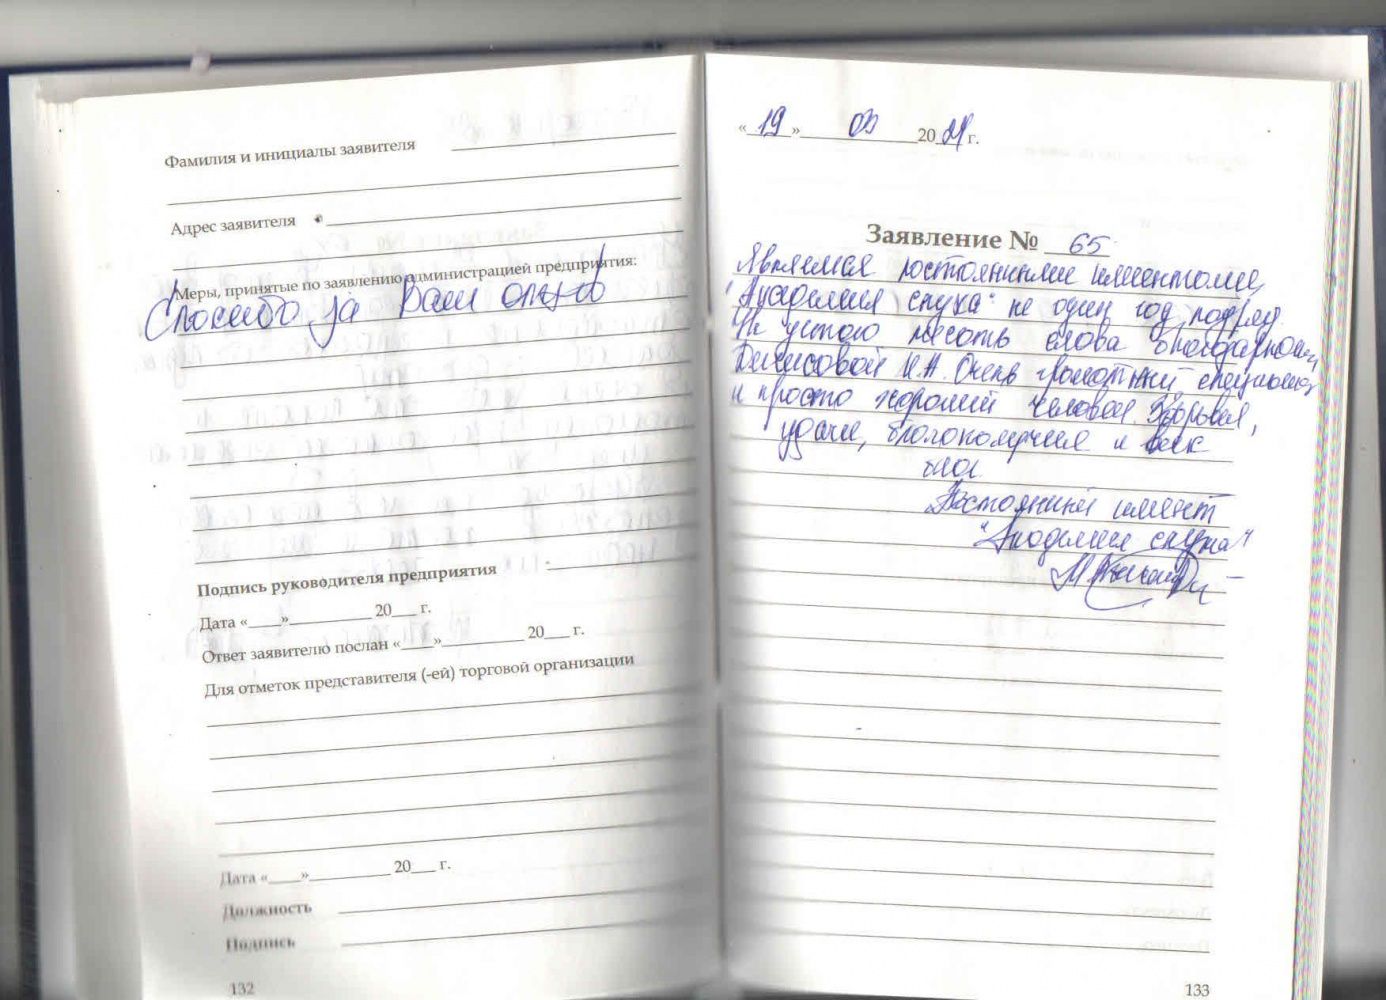 Фамилия и инициалы заявителя
Адрес заявителя
Меры, принятые по заявлению администрацией предприятия:
Спасибо за Ваш отзыв
Подпись руководителя предприятия
Дата «____»__________ 20___ г.
Ответ заявителю послан «____»__________ 20___ г.
Для отметок представителя (-ей) торговой организации
Дата «____»__________ 20___ г.
Должность
Подпись
132
«19» 03 2021 г.
Заявление № 65
Являемся постоянными клиентами
"Академия слуха" не один год подряд.
Не устаю писать слова благодарности
Денисовой И.Н. Очень грамотный специалист
и просто хороший человек. Здоровья,
удачи, благополучия и всех
благ.
Постоянный клиент
"Академия слуха"
133